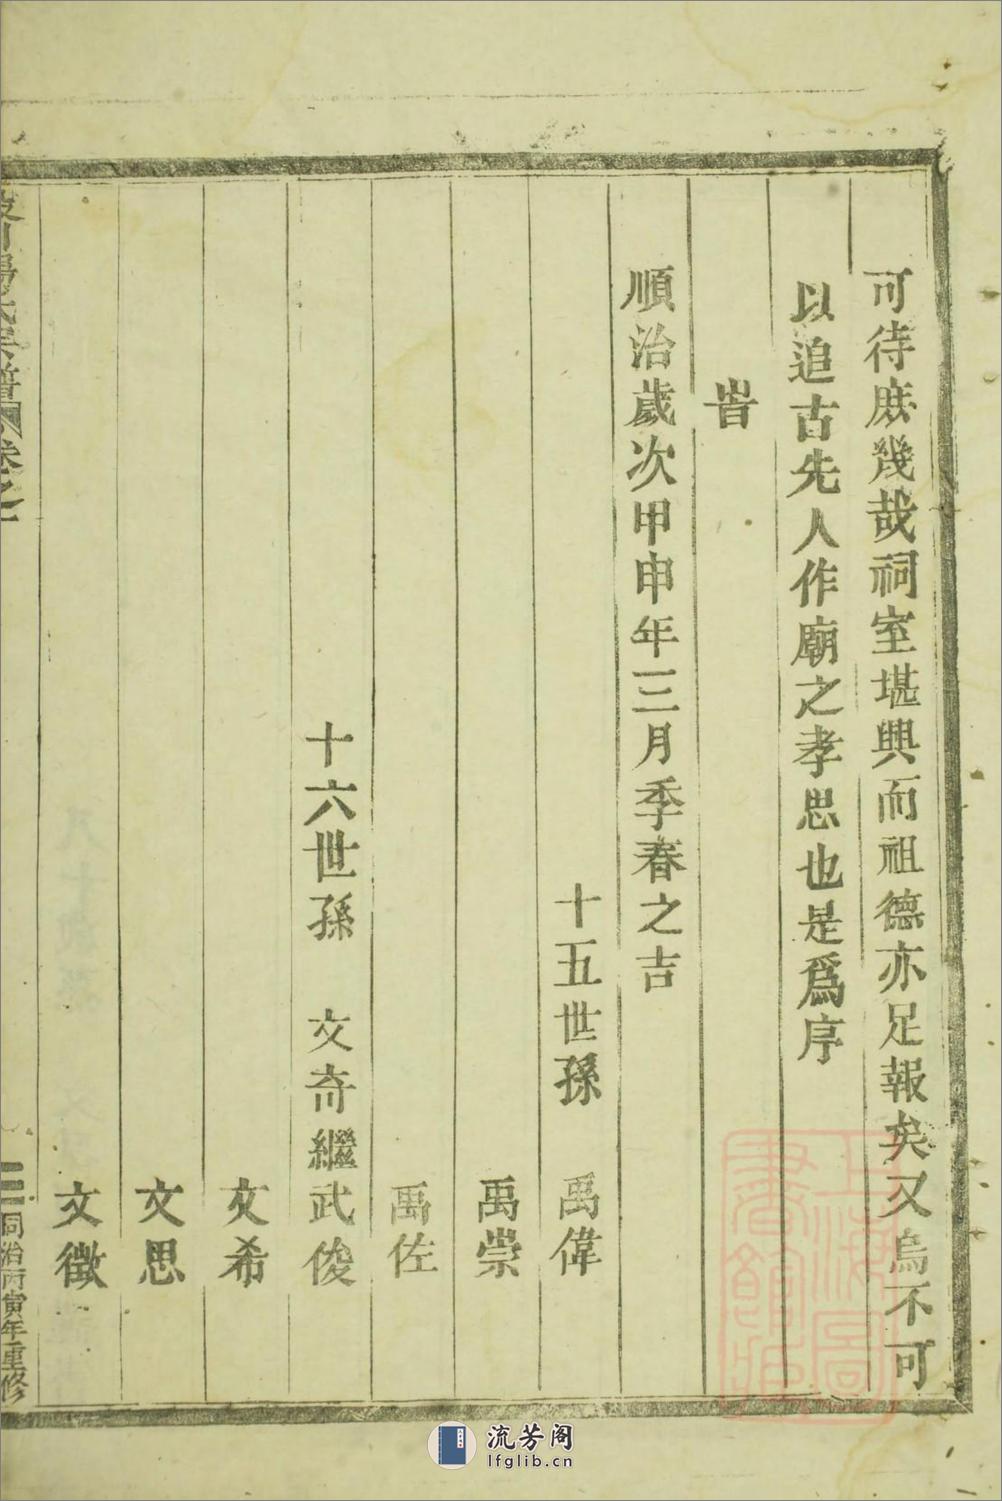 可待庶幾哉祠室堪興而祖德亦足報矣又烏不可
以追古先人作廟之孝思也是爲序
旹
順治歲次甲申年三月季春之吉
十五世孫 禹偉
禹崇
禹佐
十六世孫 文奇繼武俊
文希
文思
文徵
氏宗譜 卷之一
三 同治丙寅年重修
上海圖書館藏
流芳阁
lfglib.cn